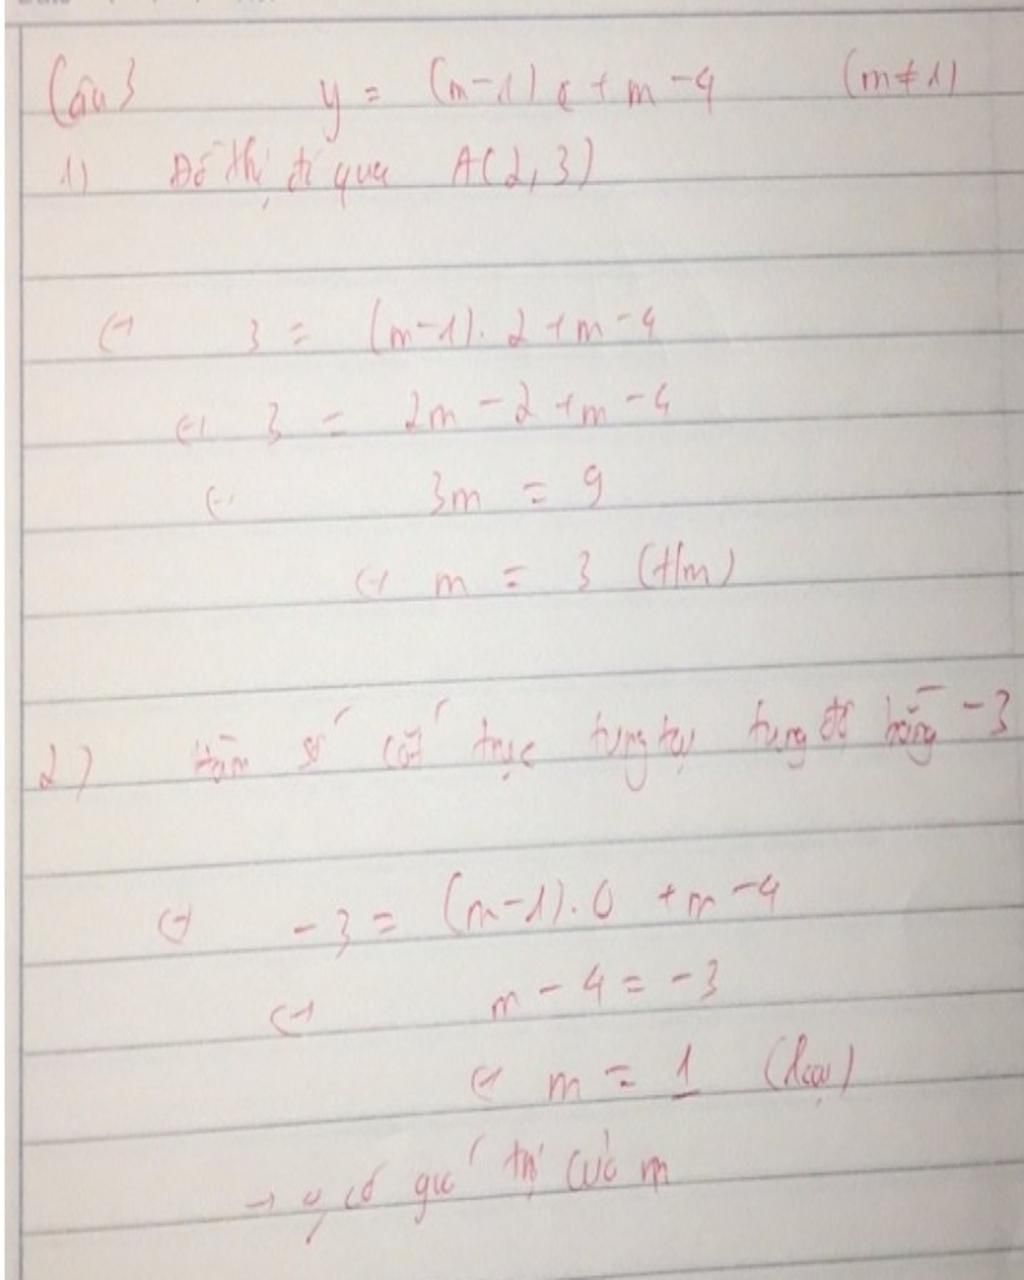 Câu 3 y = (m-1)x + m - 4 (m ≠ 1)
1) Đồ thị đi qua A(2,3)
⇔ 3 = (m-1). 2 + m - 4
⇔ 3 = 2m - 2 + m - 4
⇔ 3m = 9
⇔ m = 3 (t/m)
2) Hàm số cắt trục tung tại tung độ bằng -3
⇔ -3 = (m-1). 0 + m - 4
⇔ m - 4 = -3
⇔ m = 1 (loại)
→ có giá trị của m